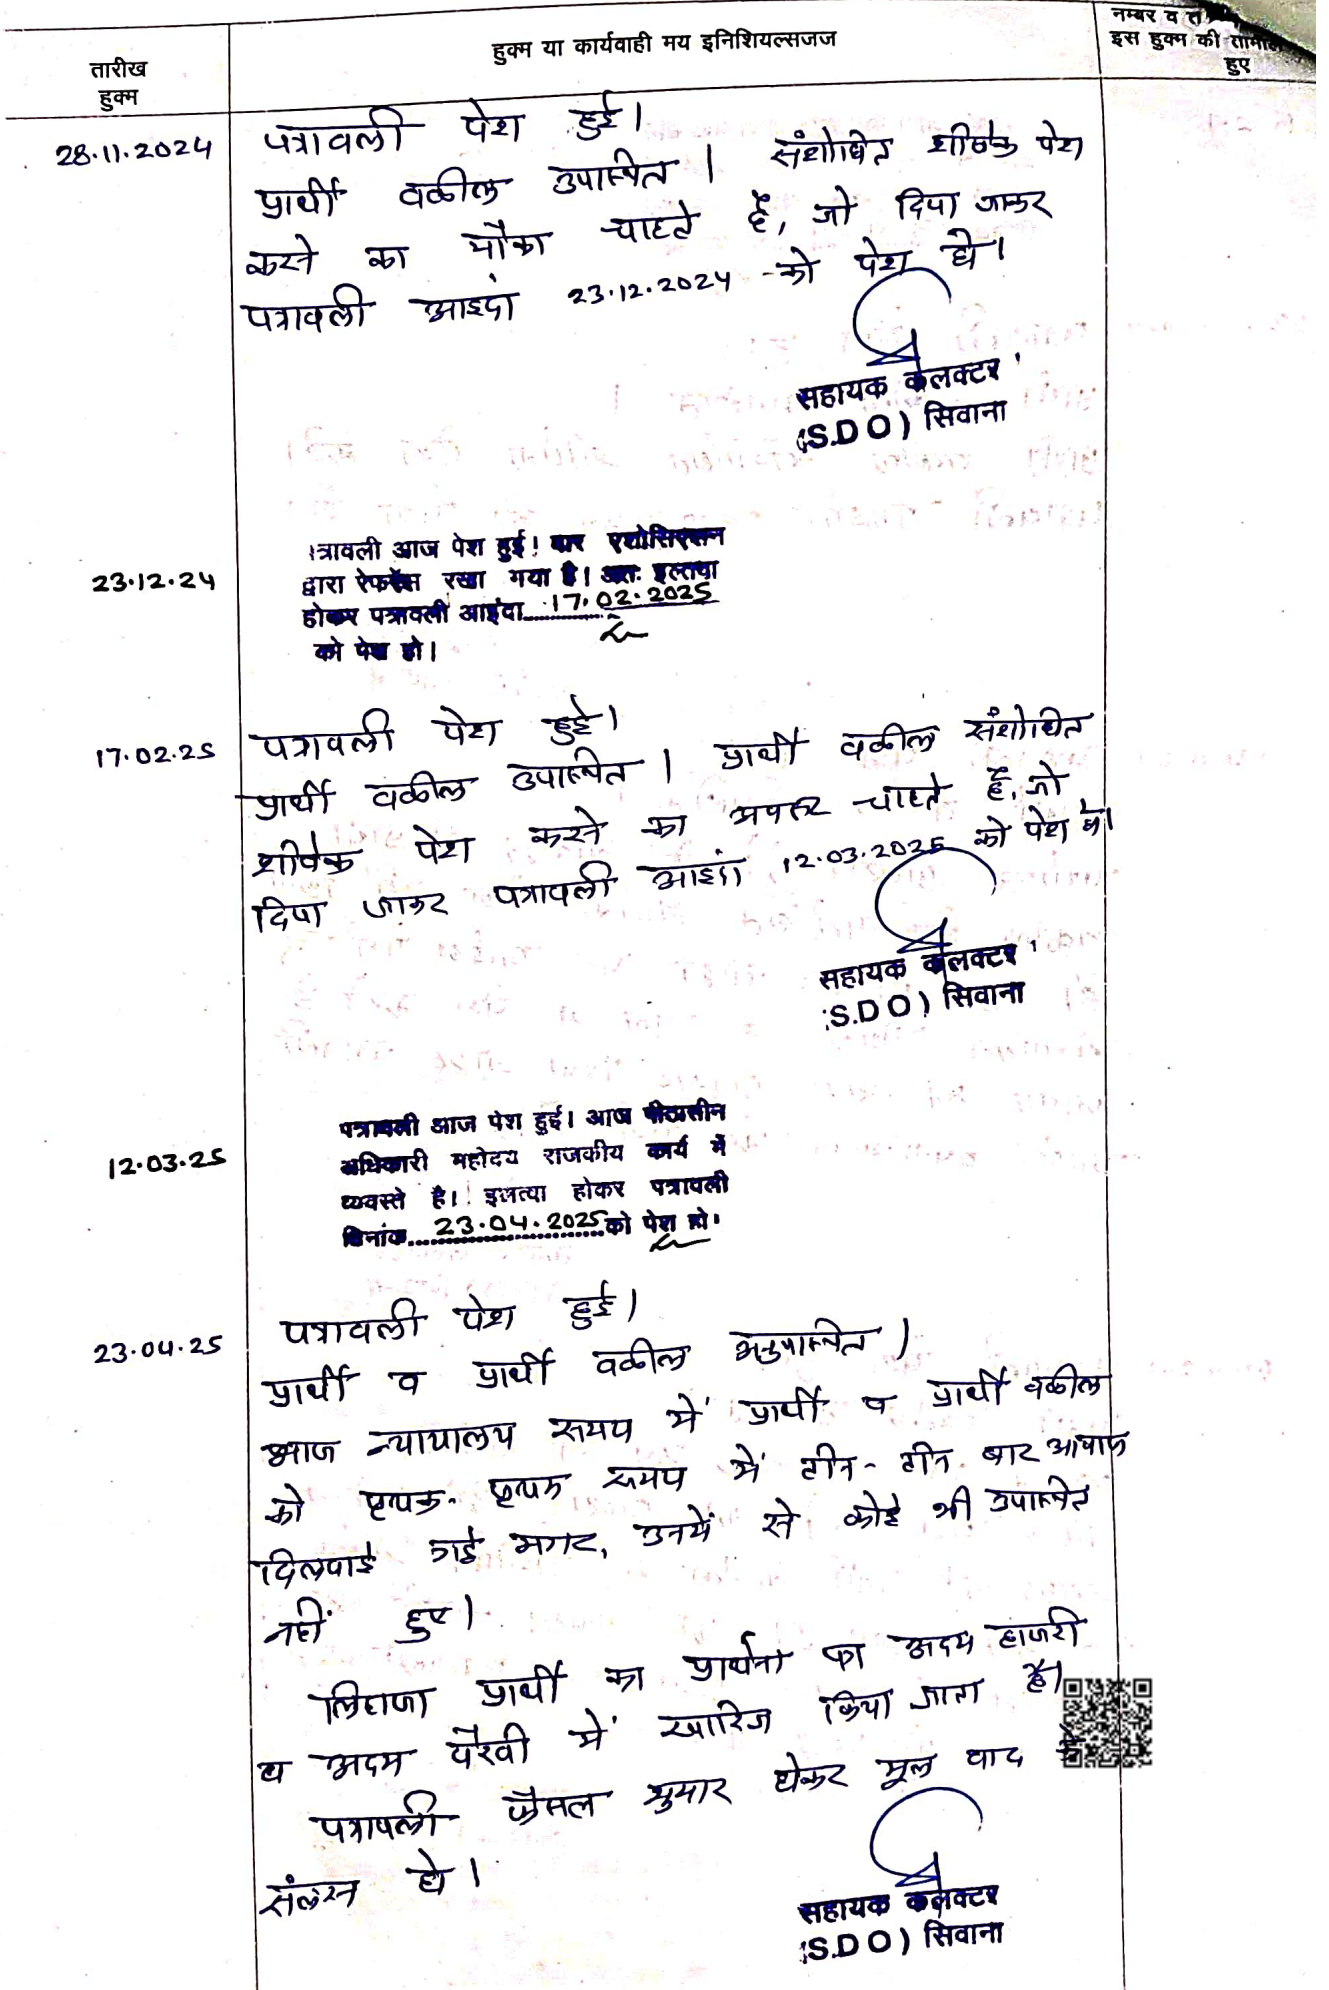 तारीख
हुक्म
हुक्म या कार्यवाही मय इनिशियल्सजज
नम्बर व त
इस हुक्म की तामील
हुए
28.11.2024
पत्रावली पेश हुई।
प्रार्थी वकील उपस्थित। संशोधित शीर्षक पेश
करने का मौका चाहते है, जो दिया जाकर
पत्रावली आइदां 23.12.2024 को पेश हो।
सहायक कलक्टर
(S.D O) सिवाना
23.12.24
त्रावली आज पेश हुई! बार एशोसिएशन
द्वारा रेफरेंस रखा गया है। अतः इल्तवा
होकर पत्रावली आइंदा 17.02.2025
को पेश हो।
17.02.25
पत्रावली पेश हुई।
प्रार्थी वकील उपस्थित। प्रार्थी वकील संशोधित
शीर्षक पेश करने का अवसर चाहते है, जो
दिया जाकर पत्रावली आइदां 12.03.2025 को पेश हो।
सहायक कलक्टर
(S.D O) सिवाना
12.03.25
पत्रावली आज पेश हुई। आज पीठासीन
अधिकारी महोदय राजकीय कार्य में
व्यवस्ते है। इलत्या होकर पत्रावली
दिनांक 23.04.2025 को पेश हो।
23.04.25
पत्रावली पेश हुई।
प्रार्थी व प्रार्थी वकील अनुपस्थित।
आज न्यायालय समय में प्रार्थी व प्रार्थी वकील
को पृथक-पृथक समय में तीन-तीन बार आवाज
दिलवाई गई मगर, उनमें से कोई भी उपस्थित
नहीं हुए।
लिहाजा प्रार्थी का प्रार्थना का अदम हाजरी
व अदम पैरवी में खारिज किया जाता है।
पत्रावली फैसल शुमार होकर मूल वाद के
संलग्न हो।
सहायक कलक्टर
(S.D O) सिवाना